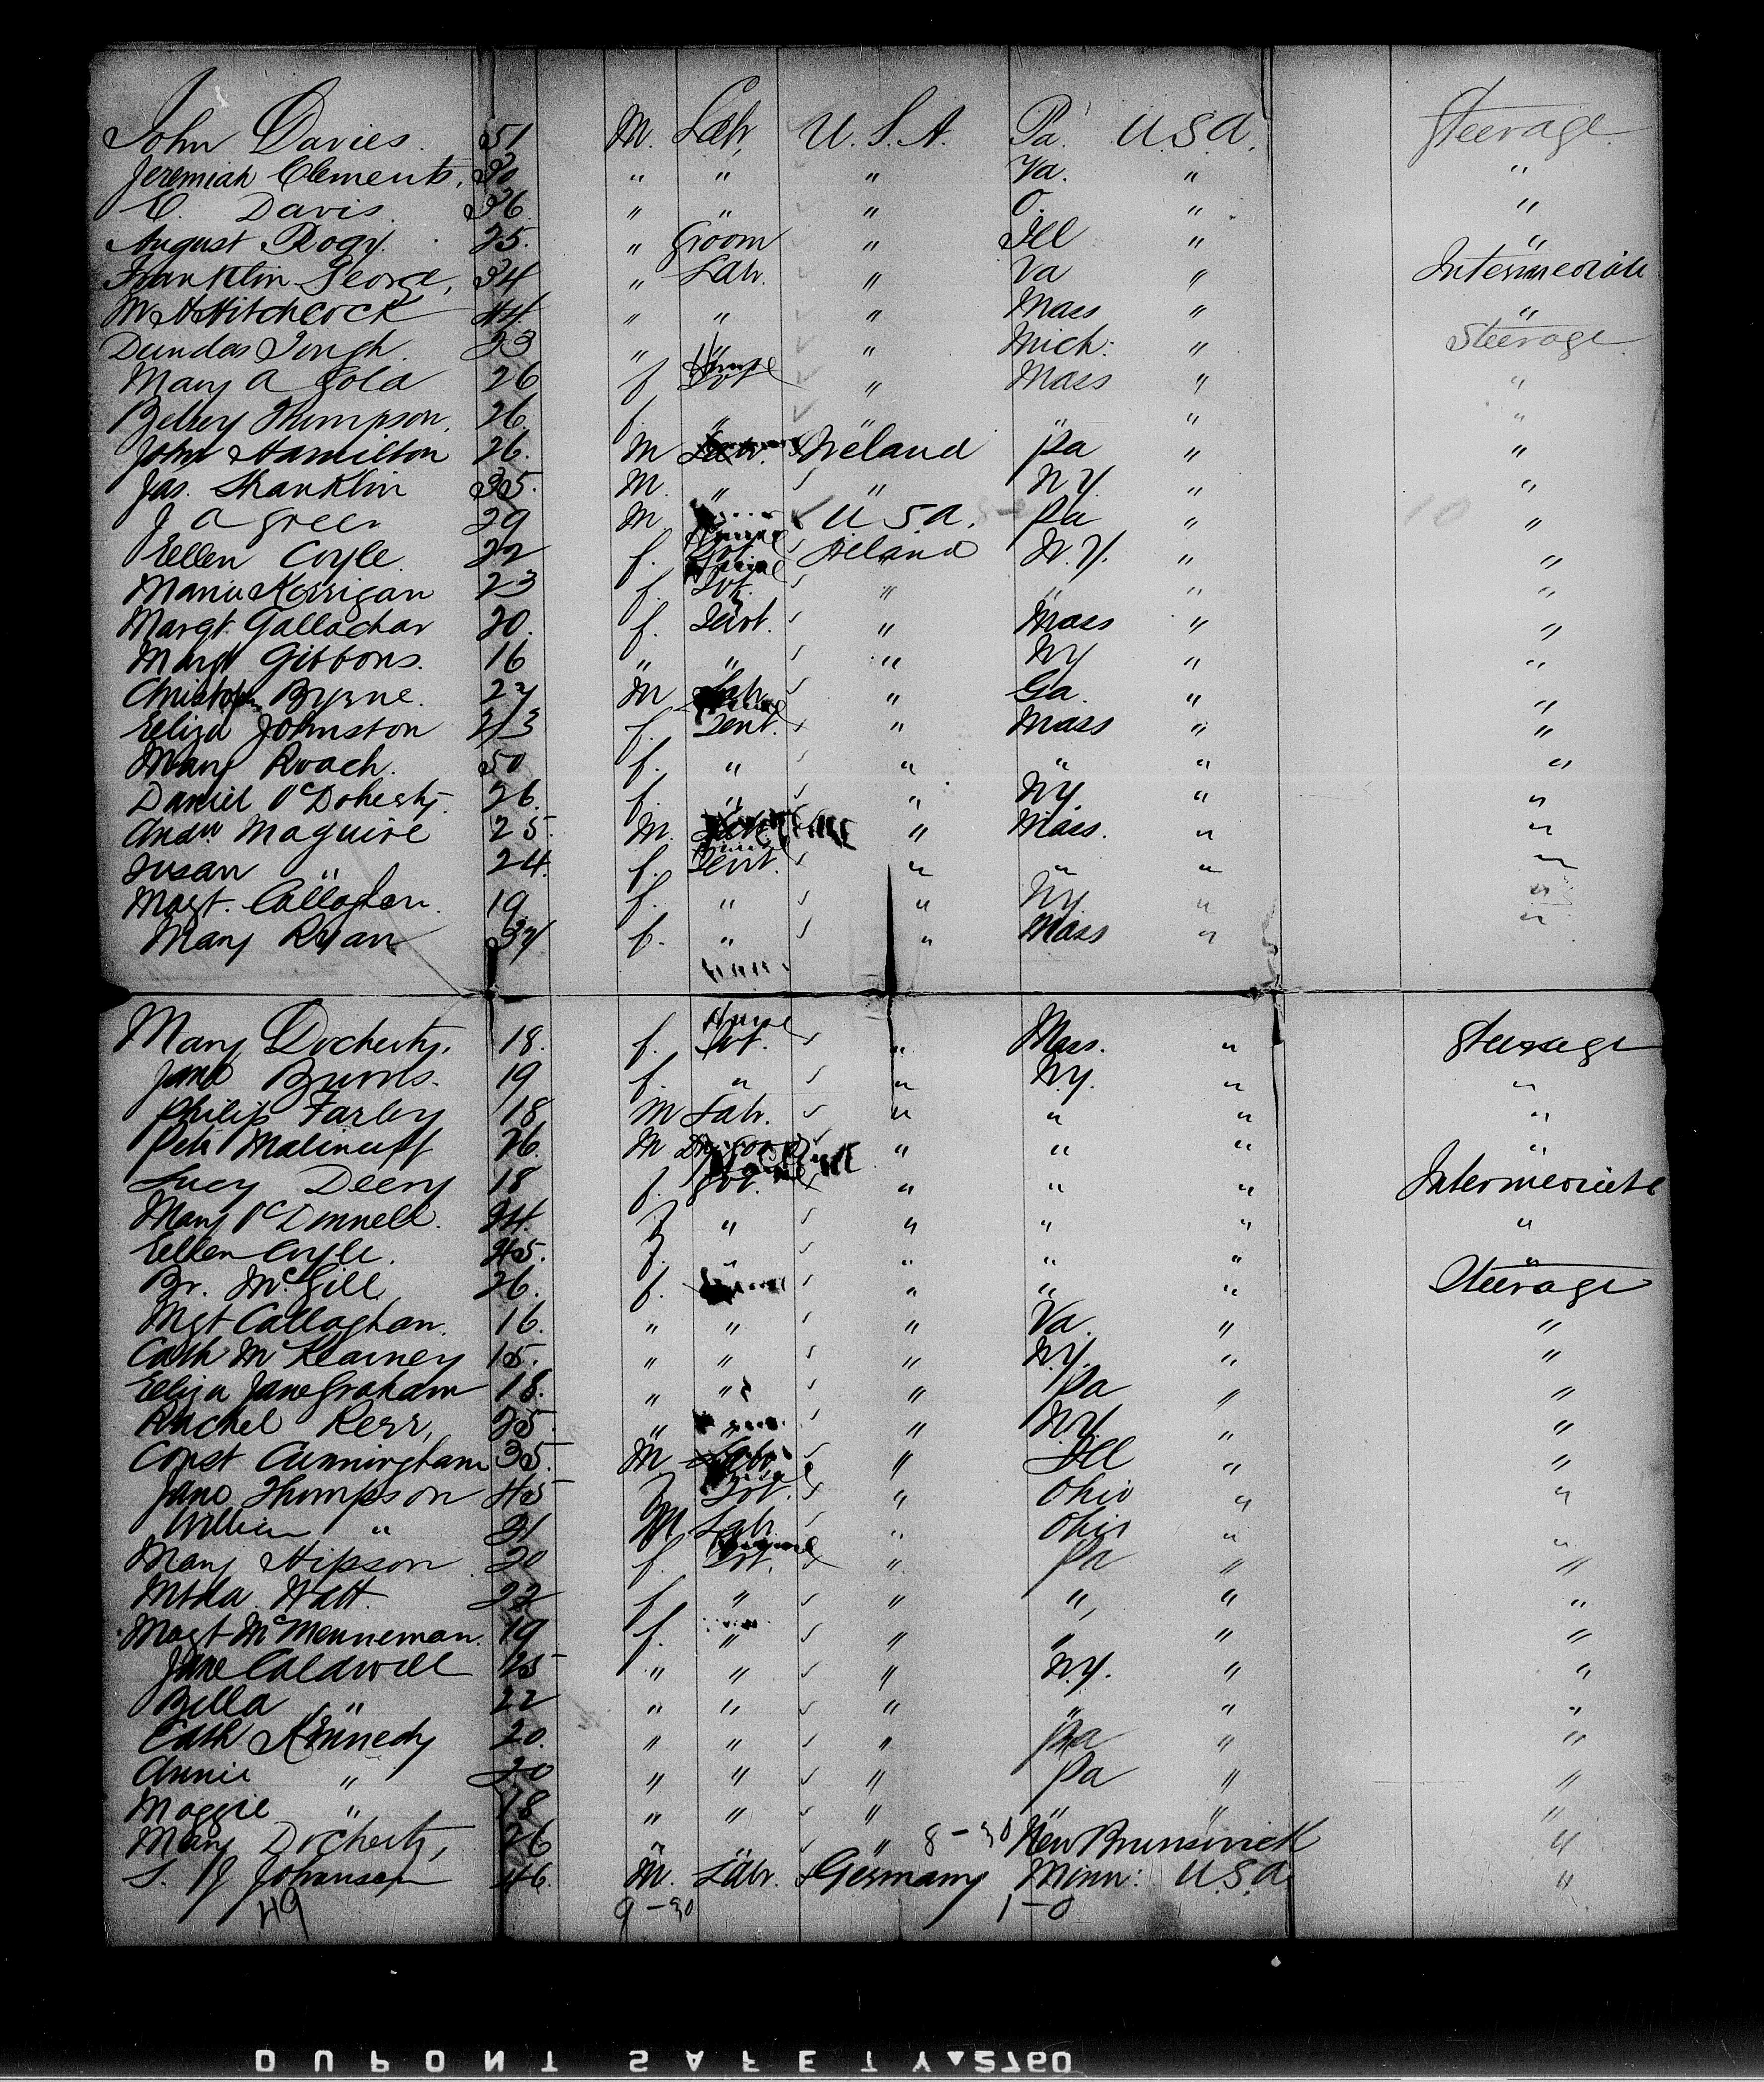 John Davies. 51 M. Labr, U.S.A. Pa. U.S.A. Steerage
Jeremiah Clements, 30 " " " Va. " "
C. Davis. 36 " " " O. " "
August Rogy. 25. " Groom " Ill " "
Franklin George, 34 " Labr. " Va " Intermediate
M H Hitchcock 44 " " " Mass " "
Dundas 23 " " " Mich: " Steerage
Mary A Gold 26 f " Mass " "
Betsey Thompson, 26. f. " " " " "
John Hamilton 26. M Labr. Ireland Pa " "
Jas. Franklin 35. M. " " N.Y. " "
J A Green 29 M U S A. Pa " 10 "
Eellen Coyle. 22 f. Svt Ireland N.Y. " "
Marie Kerrigan 23 f. Svt. " " " "
Margt. Gallachar 20. f. Servt. " Mass " "
Margt Gibbons. 16 " " " NY " "
Christoph Byrne. 27 M Labr " Ga. " "
Eeliza Johnston 23 f. Servt. " Mass " "
Mary Roach. 50 f. " " " " "
Daniel O'Doherty. 26. f. " " NY. " "
Andw. Maguire 25. M. Labr. " Mass. " "
Susan " 24. f. Servt. " " " "
Magt. Callaghan. 19 f. " " NY " "
Mary Ryan 34 f. " " Mass " "
Mary Docherty. 18. f. House Svt. " Mass. " Steerage
Jane Burns. 19 f. " " N.Y. " "
Philip Farley 18 M Labr. " " " "
Petr 26. M " " " "
Lucy Deery 18 f. Svt. " " " Intermediate
Mary O'Donnell. 24. f " " " " "
Eellen Coyle. 45. f. " " " " "
Br. McGill 26. f. " " " Steerage
Mgt Callaghan. 16. " " " Va. " "
Cath McKearney 15. " " " N.Y. " "
Eeliza Jane Graham 18. " " " Pa " "
Rachel Kerr, 25. " " " NY. " "
Const Cunningham 35. M. Labr. " Ill " "
Jane Thompson 45 f Svt. " Ohio " "
William " 21 M Labr. " Ohio " "
Mary Hipson 20 f. Svt. " Pa " "
Mtda Watt. 22 f " " " " "
Magt McMenneman. 19 f. " " " " "
Jane Caldwell 25 " " " N.Y. " "
Bella " 22 " " " " " "
Cath Kennedy 20. " " " Pa " "
Annie " 20 " " " Pa " "
Maggie " 18 " " " " " "
Mary Docherty, 26 " " " 8-30 New Brunswick "
S. J Johansen 46. M. Labr. Germany Minn: U.S.A. "
49 9-30 1-0
DUPONT SAFETY 2760